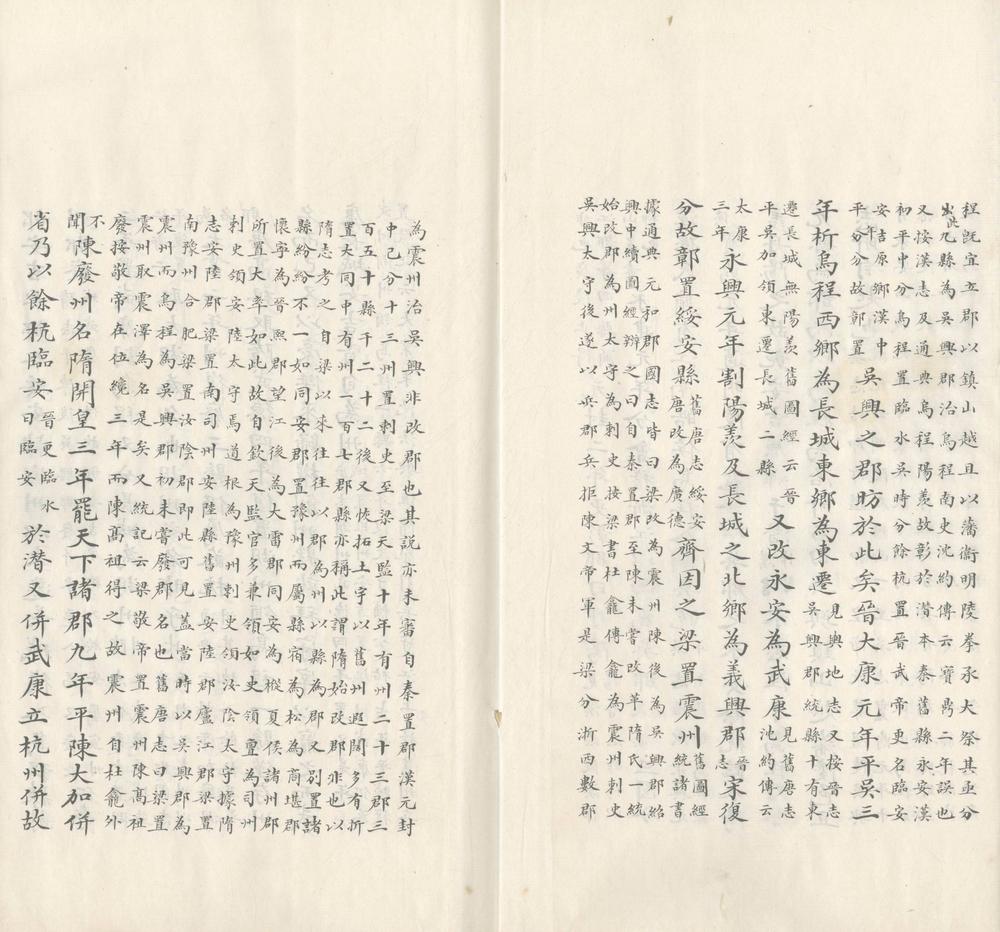 程既宜立郡以鎮山越且以藩衞明陵奉承大祭其亟分
出此九縣為吳興郡治烏程南史沈約傳云寶鼎二年誤也
又按漢志及通典烏程陽羨故彰於潛本秦舊縣永安漢
初平中分烏程置臨水吳時分餘杭置晉武帝更名臨安
安吉原鄉漢中
平年分分故鄣置
吳興之郡昉於此矣晉大康元年平吳三
年析烏程西鄉為長城東鄉為東遷
見輿地志又按晉志
吳興郡統縣十有東
遷長城無陽羨舊圖經云晉
平吳加領東遷長城二縣
又改永安為武康
見舊唐志
沈約傳云
太康
三年
永興元年割陽羨及長城之北鄉為義興郡
晉
志
宋復
分故鄣置綏安縣
舊唐志綏安
唐改為廣德
齊因之梁置震州
舊圖經
統諸書
據通典元和郡國志皆曰梁改為震州陳後為吳興郡紹
興中續圖經辨之曰自秦置郡至陳未嘗改革隋氏一統
始改郡為州太守為刺史按梁書杜龕傳龕為震州刺史
吳興太守後遂以兵郡兵拒陳文帝軍是梁分浙西數郡
為震州治吳興非改郡也其說亦未審自秦置郡漢元封
中已分十三州置刺史至梁天監十年有州二十三郡三
百五十縣千二十二後又恢拓土宇以舊州遐闊多有折
置大同中有州一百七郡縣亦稱此謂隋始改郡非也以
隋志考之自梁以來往往以郡為州以縣為郡又別置諸
縣紛紛不一如同安郡置豫州而屬縣宿為松為商堪郡
懷寧為晉熙郡望江後為大雷郡同安為樅夏侯諸州郡
所置大率如此故自欽天監官多兼領如史領亶為司州
刺史領安陸太守馬道根為豫州刺史領汝陰太守據隋
志安陸郡梁置南司州安陸縣舊置安陸郡廬江郡梁置
南豫州合肥梁置汝陰郡即此可見蓋當時以吳興郡為
震州而烏程為吳興郡初未嘗廢郡名也舊唐志曰梁置
震州取震澤為名是矣又統記云梁敬帝置震州陳高祖
廢按敬帝在位纔三年而陳高祖得之故震州自杜龕外
不
聞陳廢州名隋開皇三年罷天下諸郡九年平陳大加併
省乃以餘杭臨安
晉更臨水
曰臨安
於潛又併武康立杭州併故